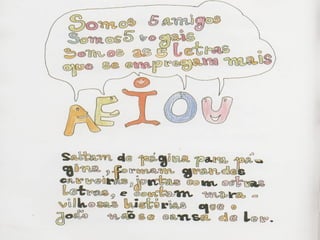 Somos 5 amigos
Somos 5 vogais
Somos as 5 letras
que se empregam mais
AEIOU
Saltam de página para pá-
gina, formam grandes
carreiras, juntas com outras
letras, e contam mara-
vilhosas histórias que o
João não se cansa de ler.